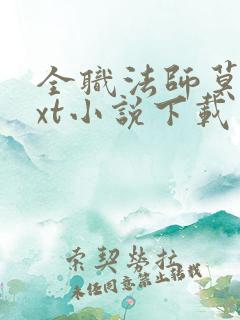 全職法師莫
xt小說下載
索契勞拉
未经同意禁止转载